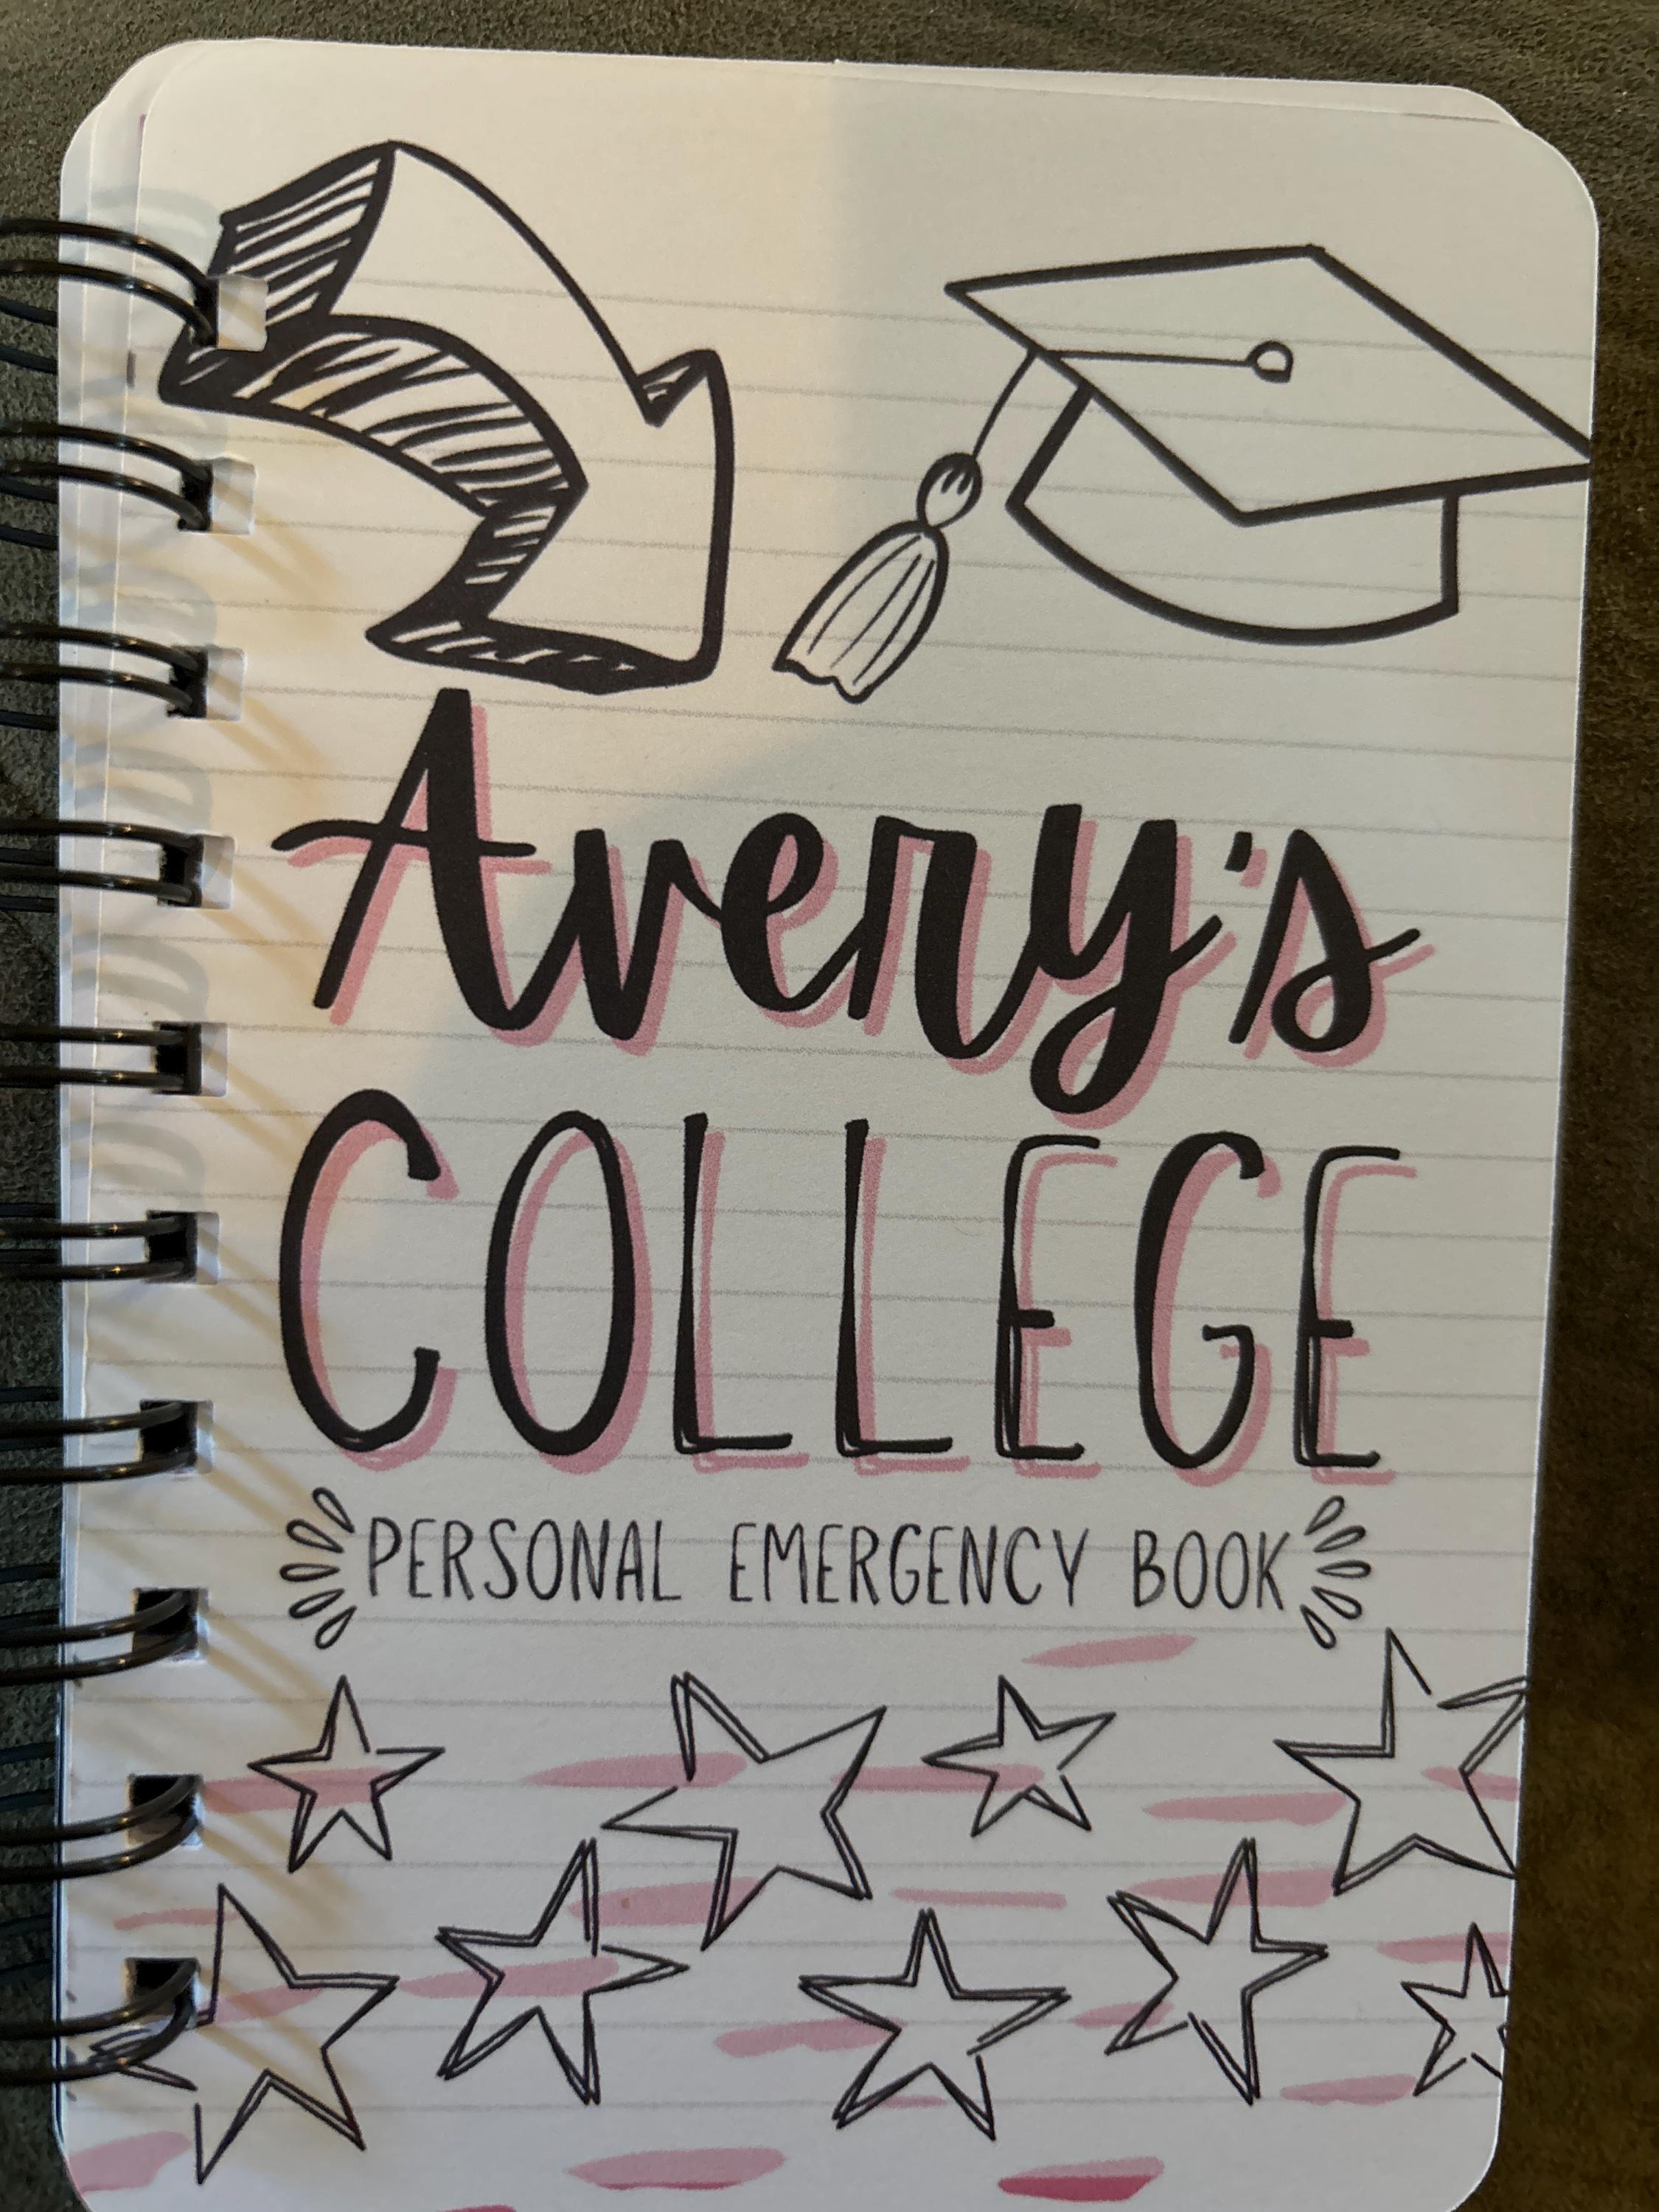 Avery's
COLLEGE
PERSONAL EMERGENCY BOOK